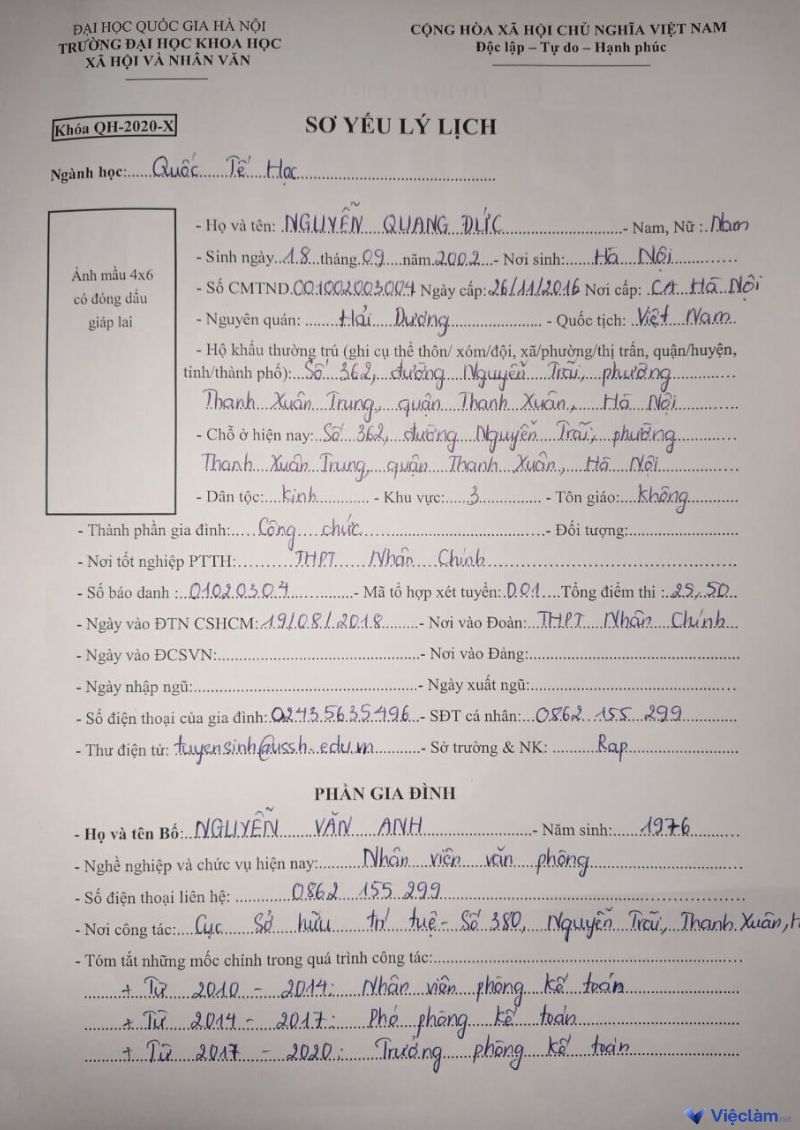 ĐẠI HỌC QUỐC GIA HÀ NỘI
TRƯỜNG ĐẠI HỌC KHOA HỌC
XÃ HỘI VÀ NHÂN VĂN
CỘNG HÒA XÃ HỘI CHỦ NGHĨA VIỆT NAM
Độc lập – Tự do – Hạnh phúc
Khóa QH-2020-X
SƠ YẾU LÝ LỊCH
Ngành học:.....Quốc Tế Học
Ảnh mầu 4x6
có đóng dấu
giáp lai
- Họ và tên: NGUYỄN QUANG ĐỨC - Nam, Nữ : Nam
- Sinh ngày 18 tháng 09 năm 2002 - Nơi sinh: Hà Nội
- Số CMTND 001002003004 Ngày cấp: 26/11/2016 Nơi cấp: CA Hà Nội
- Nguyên quán: Hải Dương - Quốc tịch: Việt Nam
- Hộ khẩu thường trú (ghi cụ thể thôn/ xóm/đội, xã/phường/thị trấn, quận/huyện,
tỉnh/thành phố): Số 362, đường Nguyễn Trãi, phường
Thanh Xuân Trung, quận Thanh Xuân, Hà Nội
- Chỗ ở hiện nay: Số 362, đường Nguyễn Trãi, phường
Thanh Xuân Trung, quận Thanh Xuân, Hà Nội
- Dân tộc: Kinh - Khu vực: 3 - Tôn giáo: Không
- Thành phần gia đình: Công chức - Đối tượng:
- Nơi tốt nghiệp PTTH: THPT Nhân Chính
- Số báo danh : 01020304 - Mã tổ hợp xét tuyển: D01 Tổng điểm thi : 25,50
- Ngày vào ĐTN CSHCM: 19/08/2018 - Nơi vào Đoàn: THPT Nhân Chính
- Ngày vào ĐCSVN: - Nơi vào Đảng:
- Ngày nhập ngũ: - Ngày xuất ngũ:
- Số điện thoại của gia đình: 02435635496 - SĐT cá nhân: 0862 155 299
- Thư điện tử: tuyensinh@ussh.edu.vn - Sở trường & NK: Rap
PHẦN GIA ĐÌNH
- Họ và tên Bố: NGUYỄN VĂN ANH - Năm sinh: 1976
- Nghề nghiệp và chức vụ hiện nay: Nhân viên văn phòng
- Số điện thoại liên hệ: 0862 155 299
- Nơi công tác: Cục Sở hữu trí tuệ - Số 380, Nguyễn Trãi, Thanh Xuân,
- Tóm tắt những mốc chính trong quá trình công tác:
+ Từ 2010 - 2014: Nhân viên phòng kế toán
+ Từ 2014 - 2017: Phó phòng kế toán
+ Từ 2017 - 2020: Trưởng phòng kế toán
Việclàm.net